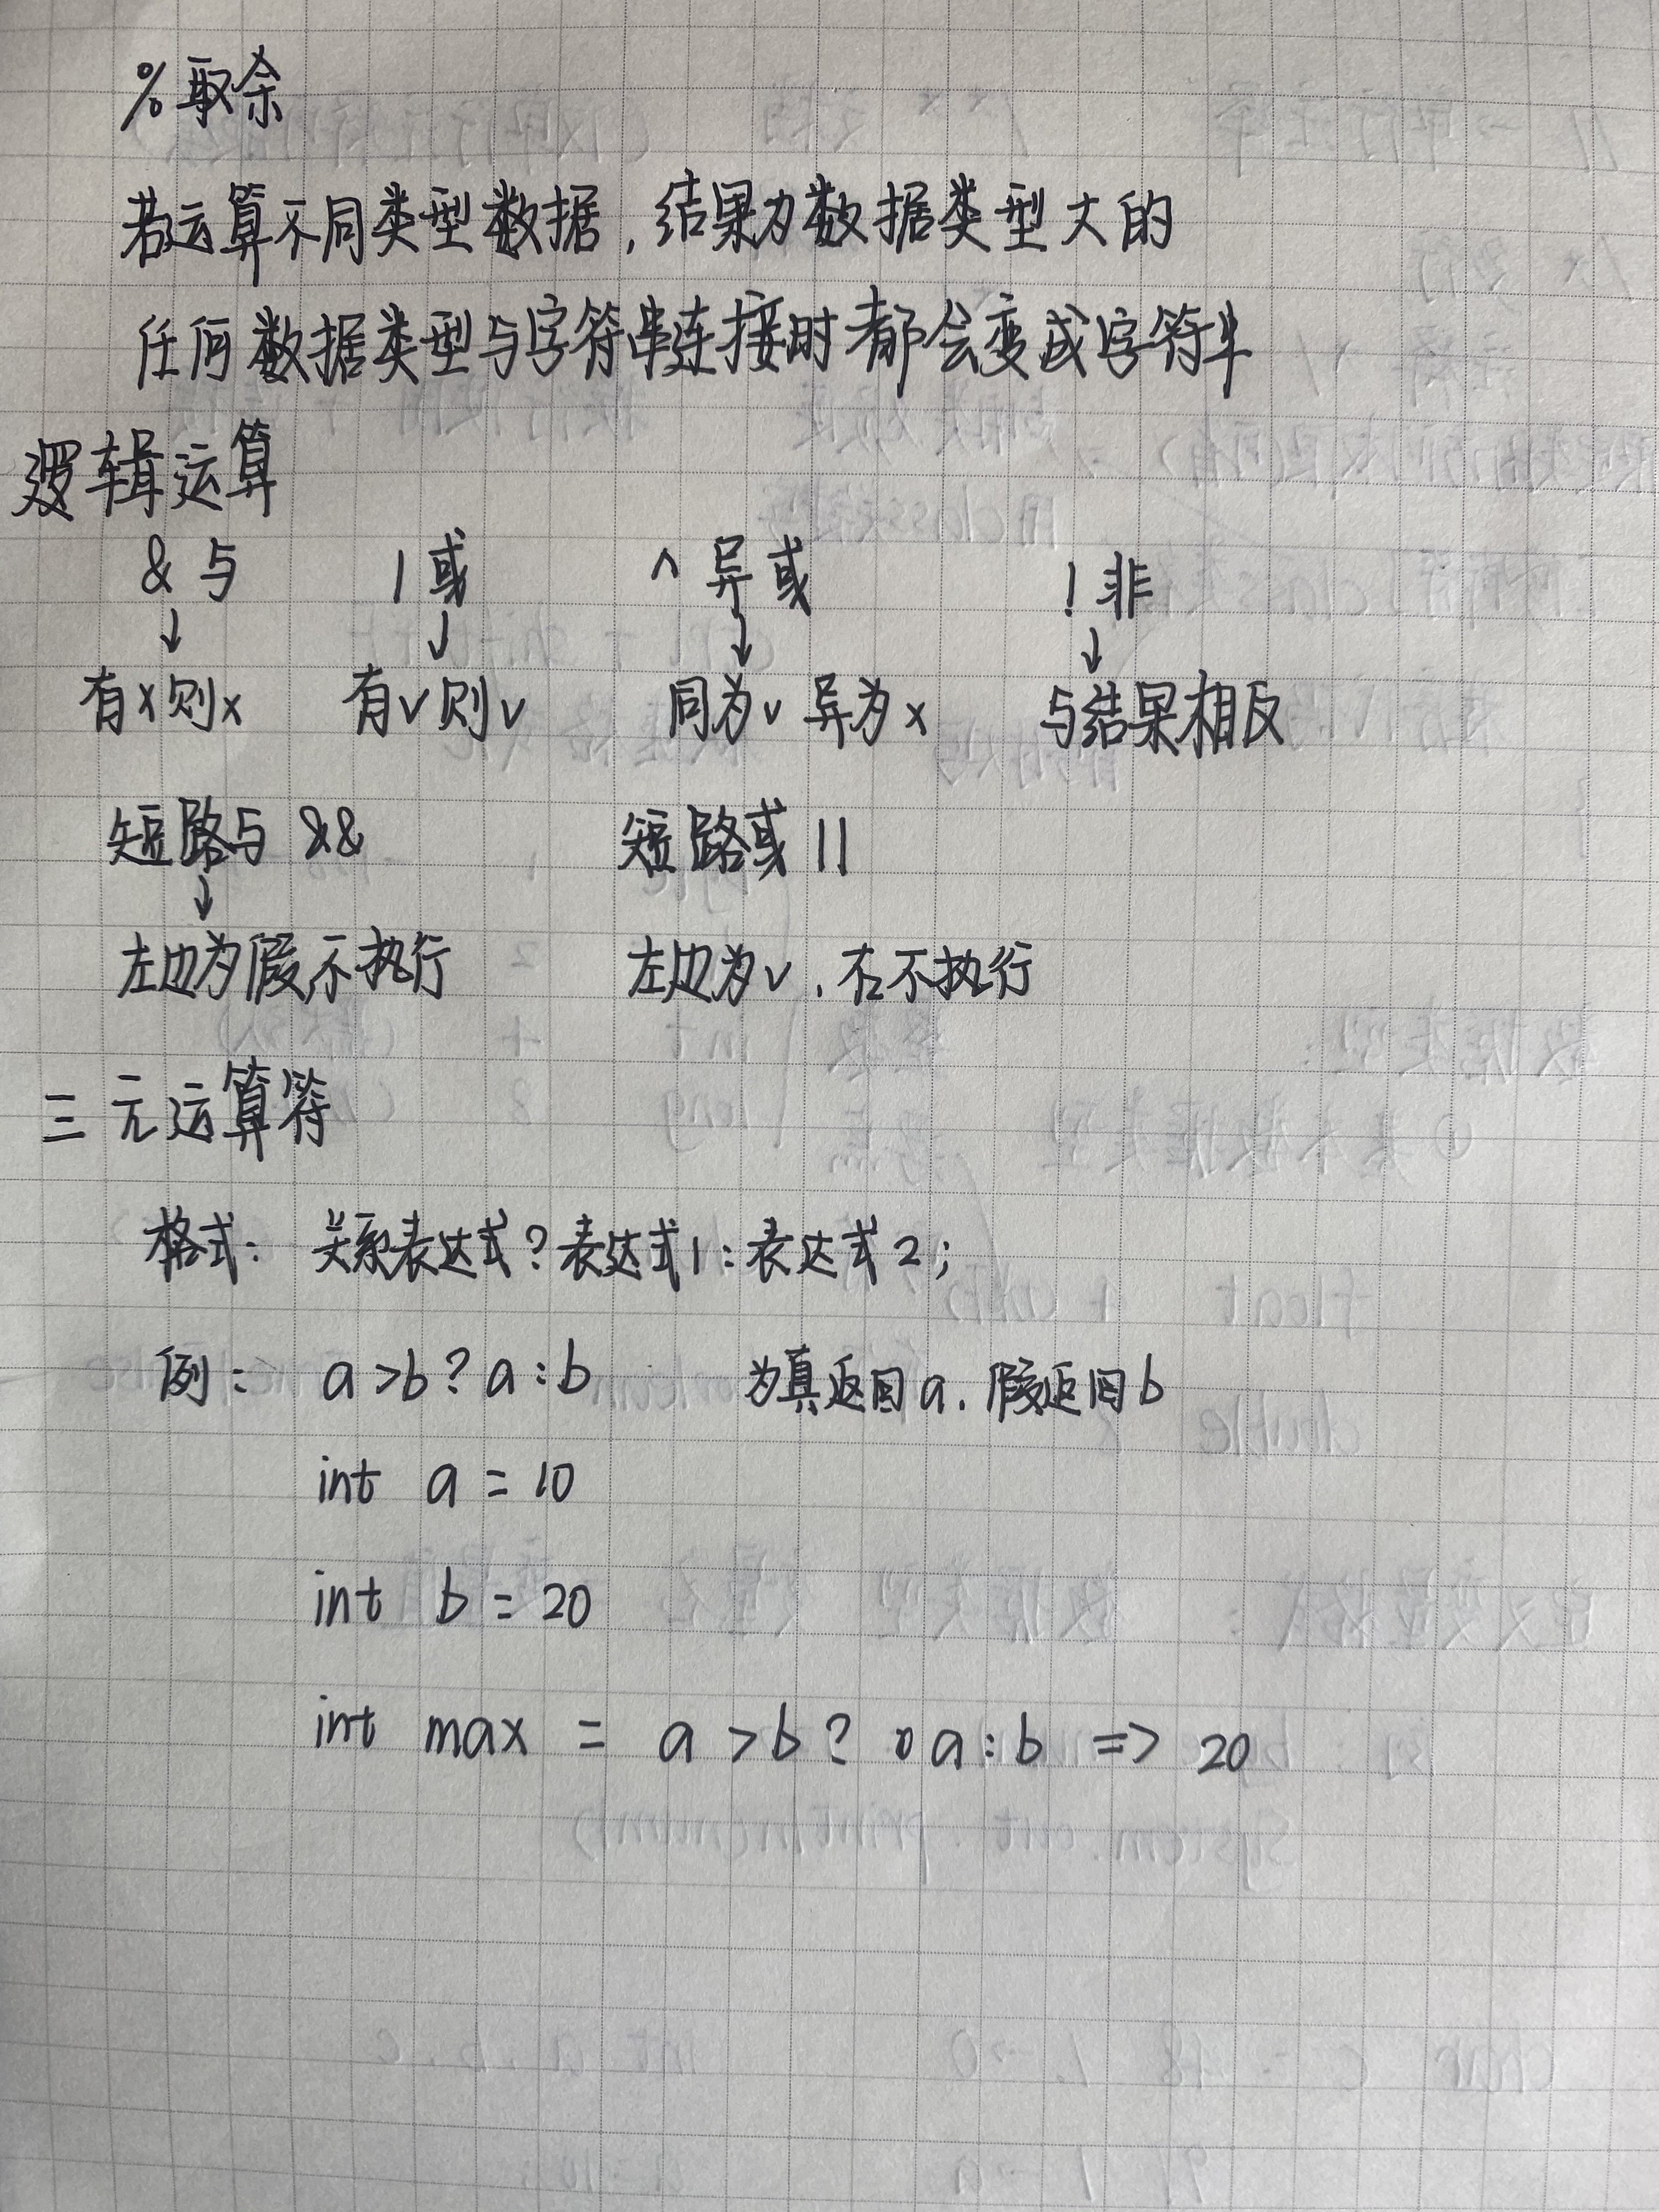 %取余
若运算不同类型数据,结果为数据类型大的
任何数据类型与字符串连接时都会变成字符串
逻辑运算
&与 |或 ^异或 !非
↓ ↓ ↓ ↓
有x则x 有√则√ 同为√ 异为x 与结果相反
短路与 && 短路或 ||
↓
左边为假不执行 左边为√,右不执行
三元运算符
格式: 关系表达式?表达式1:表达式2;
例: a>b?a:b 为真返回a.假返回b
int a = 10
int b = 20
int max = a>b? a:b => 20